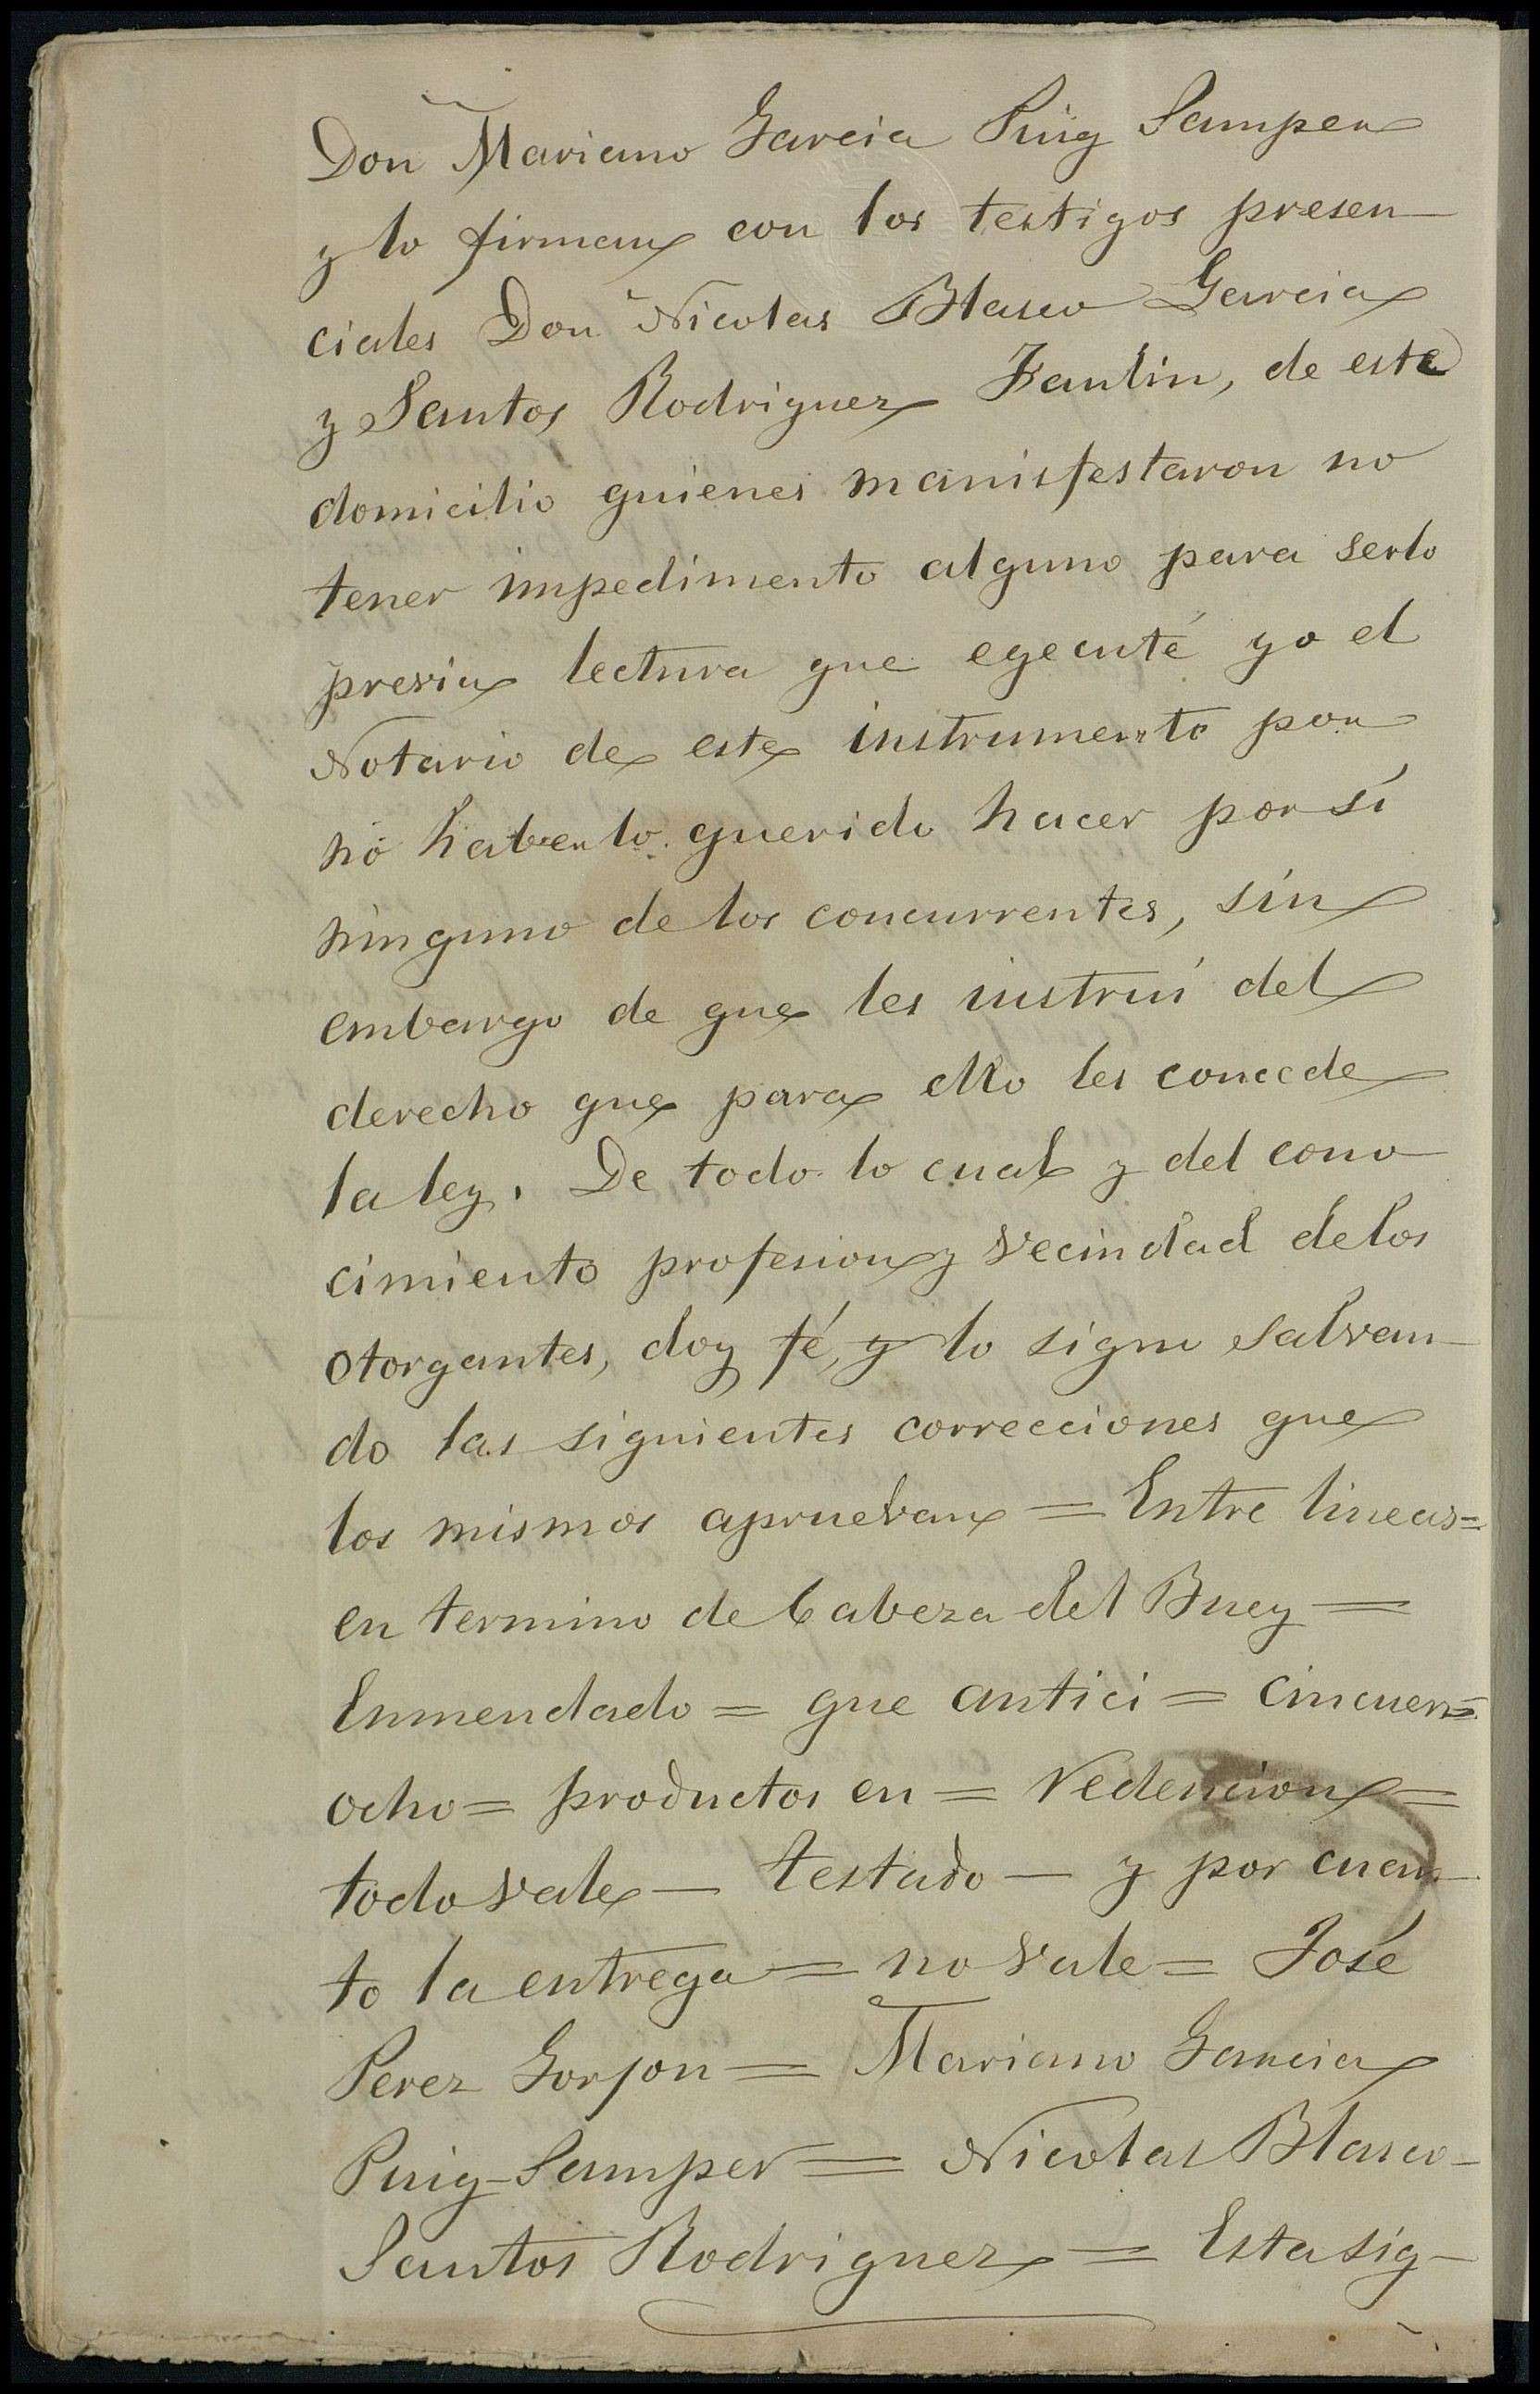 Don Mariano Garcia Puig Samper
y lo firman con los testigos presen-
ciales Don Nicolas Blasco Garcia
y Santos Rodriguez Fraulin, de este
domicilio quienes manisfestaron no
tener impedimento alguno para serlo
previa lectura que egecuté yo el
Notario de este instrumento por
no haberlo querido hacer por sí
ninguno de los concurrentes, sin
embargo de que les instruí del
derecho que para ello les concede
la ley. De todo lo cual y del cono-
cimiento profesion y vecindad de los
otorgantes, doy fé, y lo signo salvan-
do las siguientes correcciones que
los mismos aprueban = Entre lineas =
en termino de Cabeza del Buey =
Enmendado = que antici = cincuen =
ocho = productos en = redencion =
todo vale - testado - y por cuan-
to la entrega = no vale = José
Perez Gorjon = Mariano Garcia
Puig-Samper = Nicolas Blasco -
Santos Rodriguez = Esta sig-